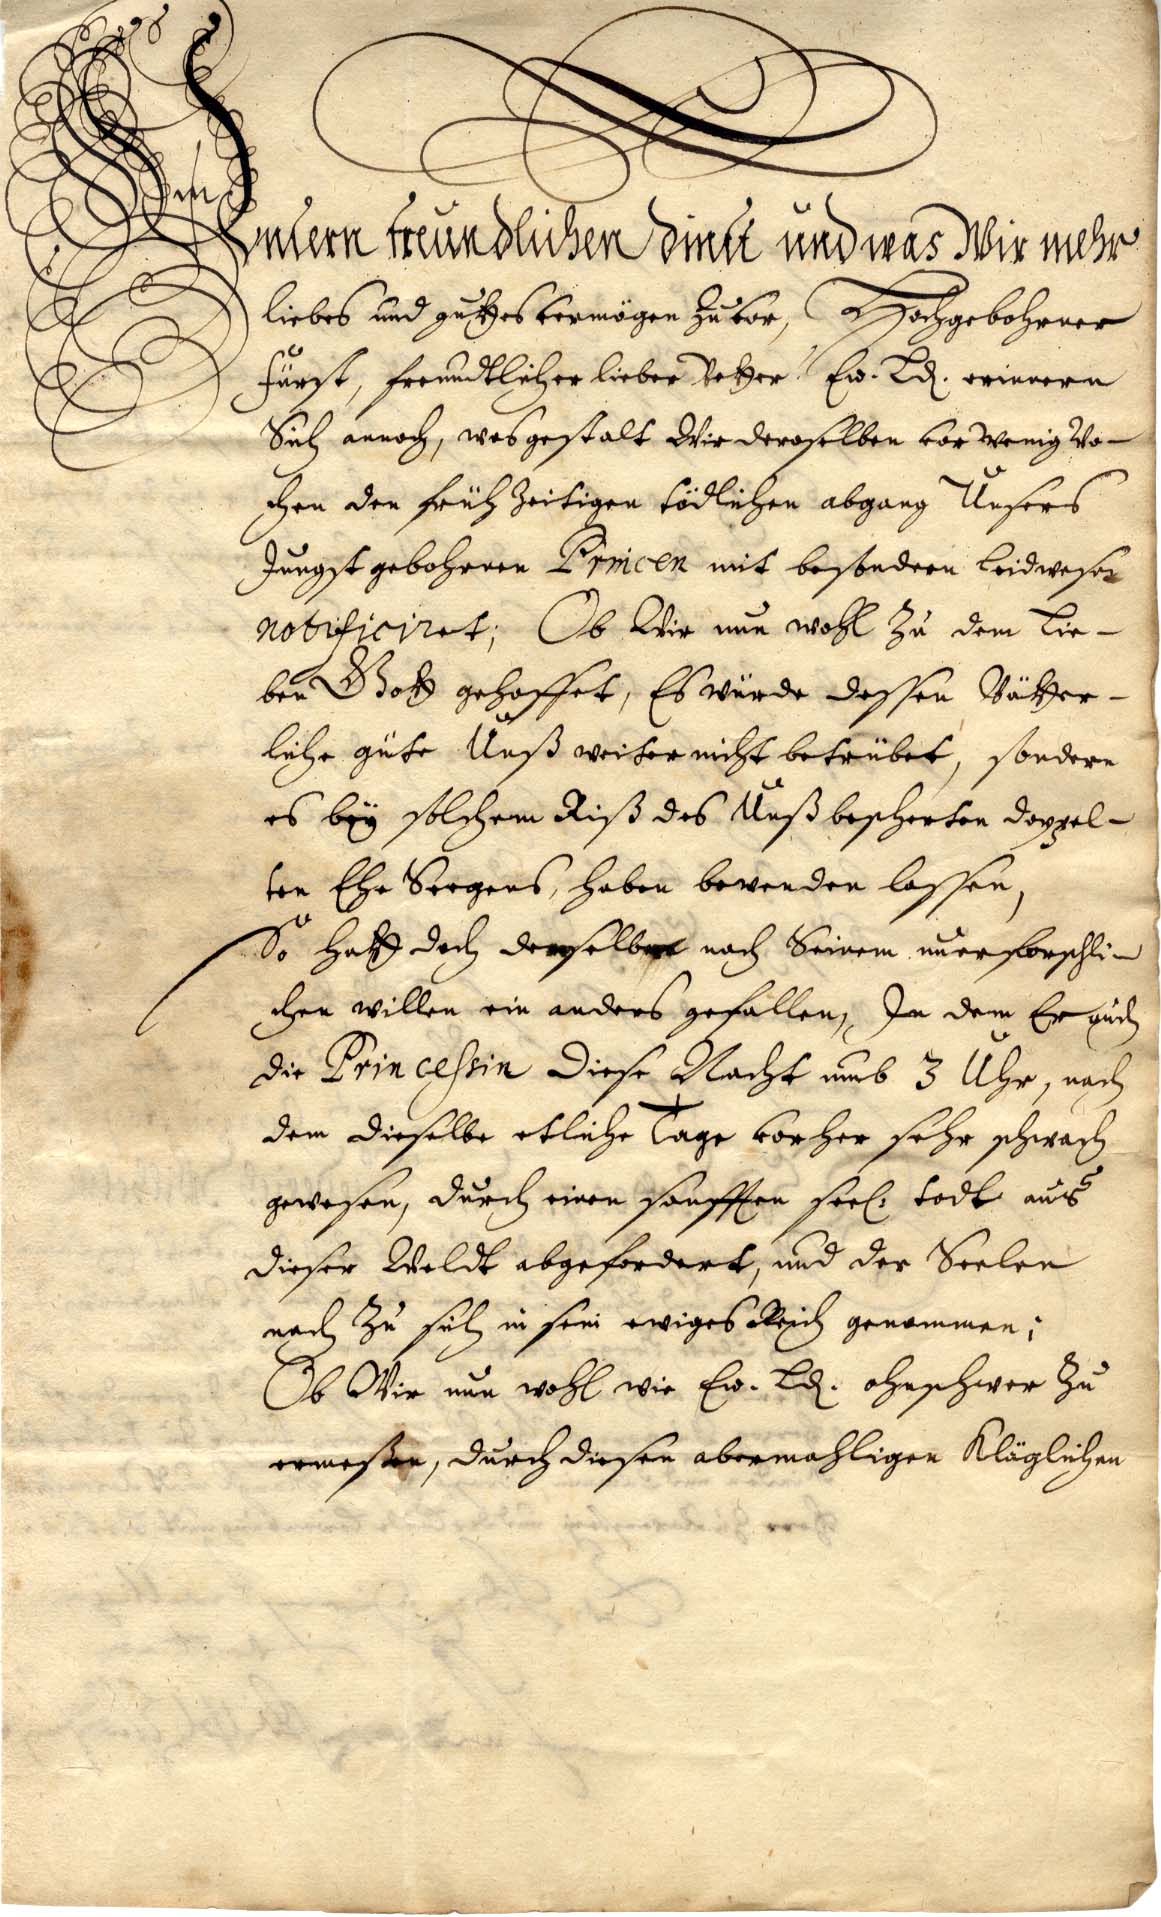 Unsern freundlichen dinst und was Wir mehr
liebes und guttes vermögen Zuvor, Hochgebohrner
Fürst, freundtlicher lieber Vetter. Ew. Ld. erinnern
Sich annoch, wesgestalt Wir deroselben vor wenig Wo-
chen den früh Zeitigen tödlichen abgang Unsers
Jungst gebohrnen Princen mit besondern leidwesen
notificiret; Ob Wir nun wohl Zu dem Lie-
ben Gott gehoffet, Es würde dessen Vätter-
liche güte Unß weiter nicht betrübet, sondern
es bey solchem Riß des Unß bescherten doppel-
ten Ehe Seegens, haben bewenden lassen,
So hatt doch demselben nach Seinem unerforschli-
chen willen ein anders gefallen, In dem Er auch
die Princessin diese Nacht umb 3 Uhr, nach
dem dieselbe etliche Tage vorher sehr schwach
gewesen, durch einen sanfften seel. todt aus
dieser Weldt abgefordert, und der Seelen
nach Zu sich in sein ewiges Reich genommen;
Ob Wir nun wohl wie Ew. Ld. ohnschwer Zu
ermeßen, durch diesen abermahligen Kläglichen